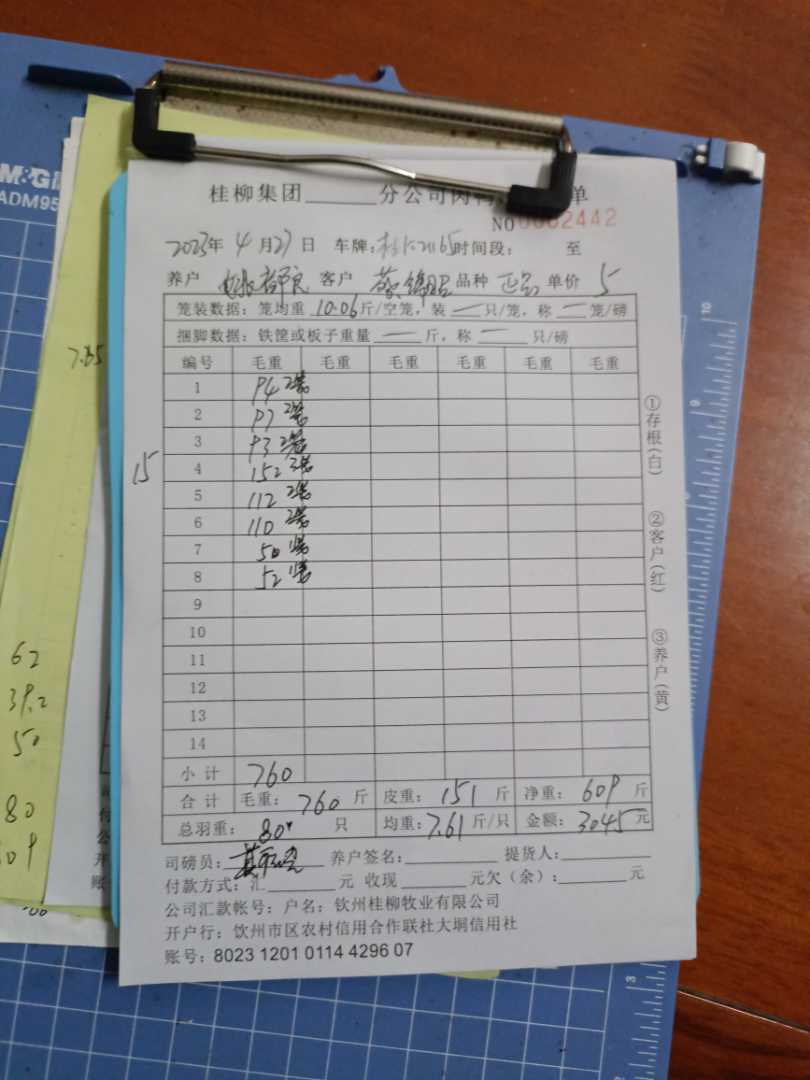 M&G
ADM95
桂柳集团______分公司肉 单
NO 0002442
2023年 4 月27日 车牌: 65时间段: 至
养户 良 客户 蔡锦 品种 正 单价 5
笼装数据: 笼均重 10.06斤/空笼, 装 一 只/笼, 称 一 笼/磅
捆脚数据: 铁筐或板子重量 一 斤, 称 一 只/磅
编号 毛重 毛重 毛重 毛重 毛重 毛重
1 94 2笼
2 97 2笼
3 93 2笼
15
4 152 3笼
5 112 2笼
6 110 2笼
7 50 1笼
8 52 1笼
9
10
11
12
13
14
小计 760
合计 毛重: 760 斤 皮重: 151 斤 净重: 609 斤
总羽重: 80 只 均重: 7.61 斤/只 金额: 3045 元
司磅员: 养户签名: 提货人:
付款方式: 汇______元 收现______元欠(余):______元
公司汇款帐号: 户名: 钦州桂柳牧业有限公司
开户行: 饮州市区农村信用合作联社大垌信用社
账号: 8023 1201 0114 4296 07
①存根(白)
②客户(红)
③养户(黄)
7.65
62
39.2
50
80